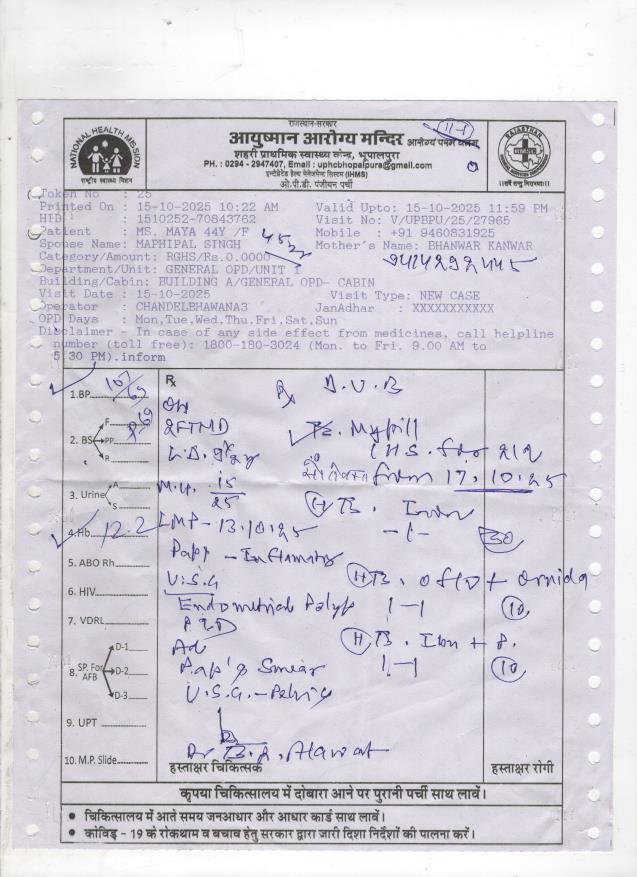 राजस्थान-सरकार
आयुष्मान आरोग्य मन्दिर
शहरी प्राथमिक स्वास्थ्य केन्द्र, भूपालपुरा
PH. : 0294 - 2947407, Email : uphcbhopalpura@gmail.com
इन्टीग्रेटेड हेल्थ मैनेजमेन्ट सिस्टम (IHMS)
ओ.पी.डी. पंजीयन पर्ची
NATIONAL HEALTH MISSION
राष्ट्रीय स्वास्थ्य मिशन
Token No : 25
Printed On : 15-10-2025 10:22 AM Valid Upto: 15-10-2025 11:59 PM
HID : 1510252-70843762 Visit No: V/UPBPU/25/27965
Patient : MS. MAYA 44Y /F Mobile : +91 9460831925
Spouse Name: MAPHIPAL SINGH Mother's Name: BHANWAR KANWAR
Category/Amount: RGHS/Rs.0.0000
9414292445
Department/Unit: GENERAL OPD/UNIT 1
Building/Cabin: BUILDING A/GENERAL OPD- CABIN
Visit Date : 15-10-2025 Visit Type: NEW CASE
Operator : CHANDELBHAWANA3 JanAdhar : XXXXXXXXXXX
OPD Days : Mon,Tue,Wed,Thu,Fri,Sat,Sun
Disclaimer - In case of any side effect from medicines, call helpline
number (toll free): 1800-180-3024 (Mon. to Fri. 9.00 AM to
5:30 PM).inform
1.BP 107/69
2. BS F PP R
3. Urine A S
4.Hb 12.2
5. ABO Rh
6. HIV
7. VDRL
8. SP. For AFB D-1 D-2 D-3
9. UPT
10. M.P. Slide
Rx
2FTMD
M.H. 15/25
LMP - 13.10.25
Papp - Inflammatory
U.S.G
Endometrial Polyp
Ad
Pap's Smear
U.S.G. - Pelvis
Rx D.U.B
Tb. Mypill
1 HS. for 21d
from 17.10.25
H Tb. Iron
-1- 30
H Tb. Oflo + Ornida
1-1 10
H Tb. Ibu + P.
1-1 10
हस्ताक्षर चिकित्सक
हस्ताक्षर रोगी
कृपया चिकित्सालय में दोबारा आने पर पुरानी पर्ची साथ लावें।
• चिकित्सालय में आते समय जनआधार और आधार कार्ड साथ लावें।
• कोविड - 19 के रोकथाम व बचाव हेतु सरकार द्वारा जारी दिशा निर्देशों की पालना करें।